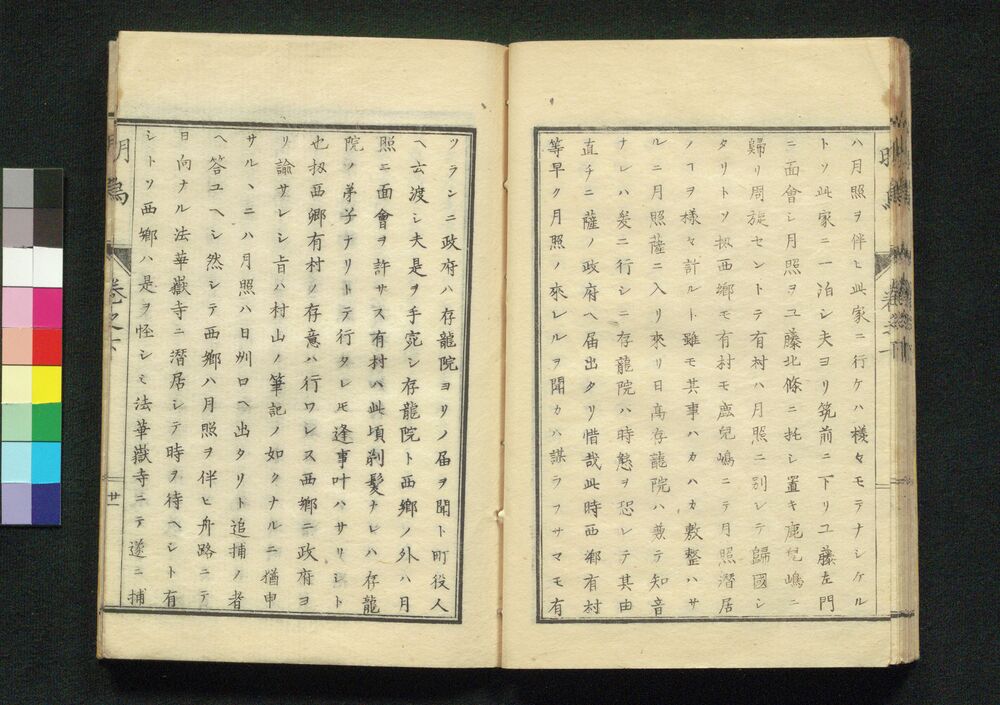 ハ月照ヲ伴ヒ此家ニ行ケハ様々モテナシケル
トソ此家ニ一泊シ夫ヨリ筑前ニ下リユ藤左門
ニ面會シ月照ヲユ藤北條ニ托シ置キ鹿兒嶋ニ
歸リ周旋セントテ有村ハ月照ニ別レテ歸國シ
タリトソ扨西郷モ有村モ鹿兒嶋ニテ月照潛居
ノヿヲ様々計ルト雖モ其事ハカハカ敷整ハサ
ルニ月照薩ニ入リ來リ日高存龍院ハ兼テ知音
ナレハ爰ニ行シニ存龍院ハ時態ヲ恐レテ其由
直チニ薩ノ政府ヘ届出タリ惜哉此時西郷有村
等早ク月照ノ來レルヲ聞カハ謀ラフサマモ有
ツランニ政府ハ存龍院ヨリノ届ヲ聞ト町役人
ヘ云渡シ夫是ヲ手宛シ存龍院ト西郷ノ外ハ月
照ニ面會ヲ許サス有村ハ此頃剃髪ナレハ存龍
院ノ弟子ナリトテ行タレ𪜈逢事叶ハサリシト
也扨西郷有村ノ存意ハ行ワレス西郷ニ政府ヨ
リ諭サレシ旨ハ村山ノ筆記ノ如クナルニ猶申
サルヽニハ月照ハ日州口ヘ出タリト追捕ノ者
ヘ答ユヘシ然シテ西郷ハ月照ヲ伴ヒ舟路ニテ
日向ナル法華嶽寺ニ潛居シテ時ヲ待ヘシト有
シトソ西郷ハ是ヲ怪シミ法華嶽寺ニテ遂ニ捕
卷之下
廿一